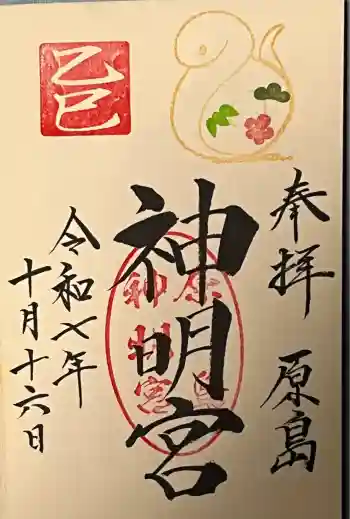 乙巳
奉拝 原島
神明宮
令和七年
十月十六日
原島
神明宮